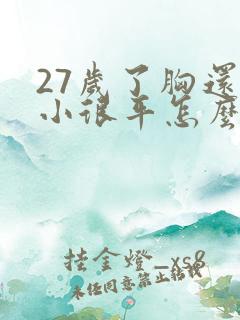 27歲了胸還
小很平怎麼
挂金燈_xs8
未任同意禁止转载